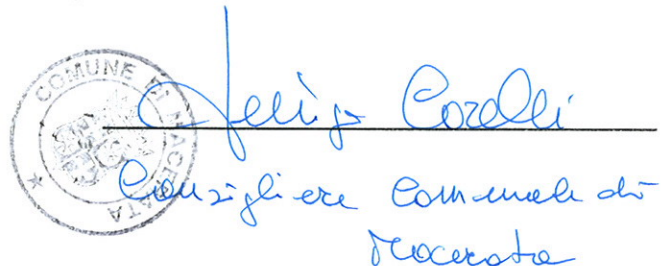 COMUNE DI MACERATA
Corelli
Consigliere Comunale di
Macerata